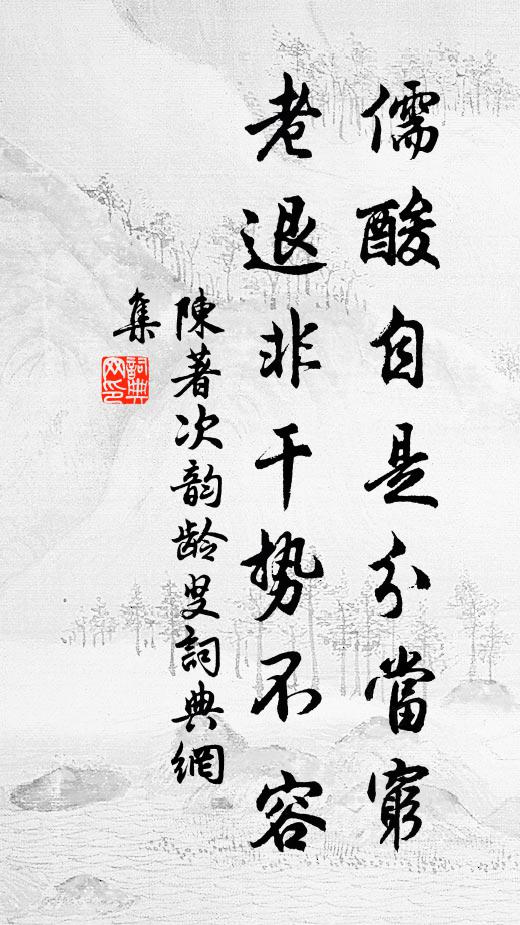 儒酸自是分當窮
老退非干势不容
陳著次韵龄叟詞典網
集
詞典網印